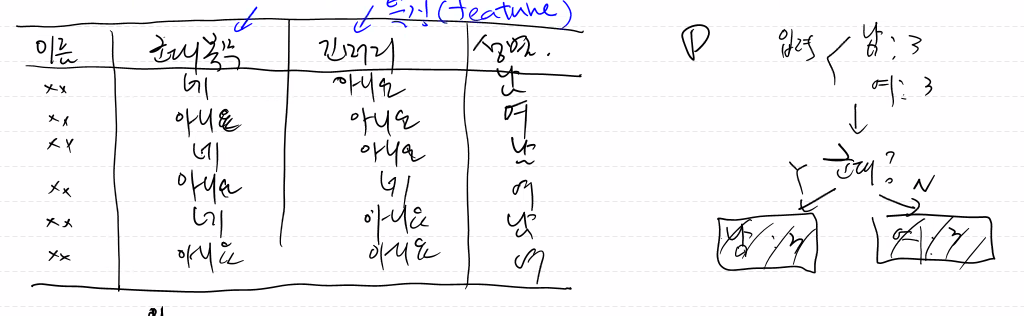 특징(feature)
이름 군대복무 긴머리 성별.
xx 네 아니요 남
xx 아니요 아니요 여
xx 네 아니요 남
xx 아니요 네 여
xx 네 아니요 남
xx 아니요 아니요 여
① 입력 남: 3
여: 3
군대?
Y N
남: 3 여: 3